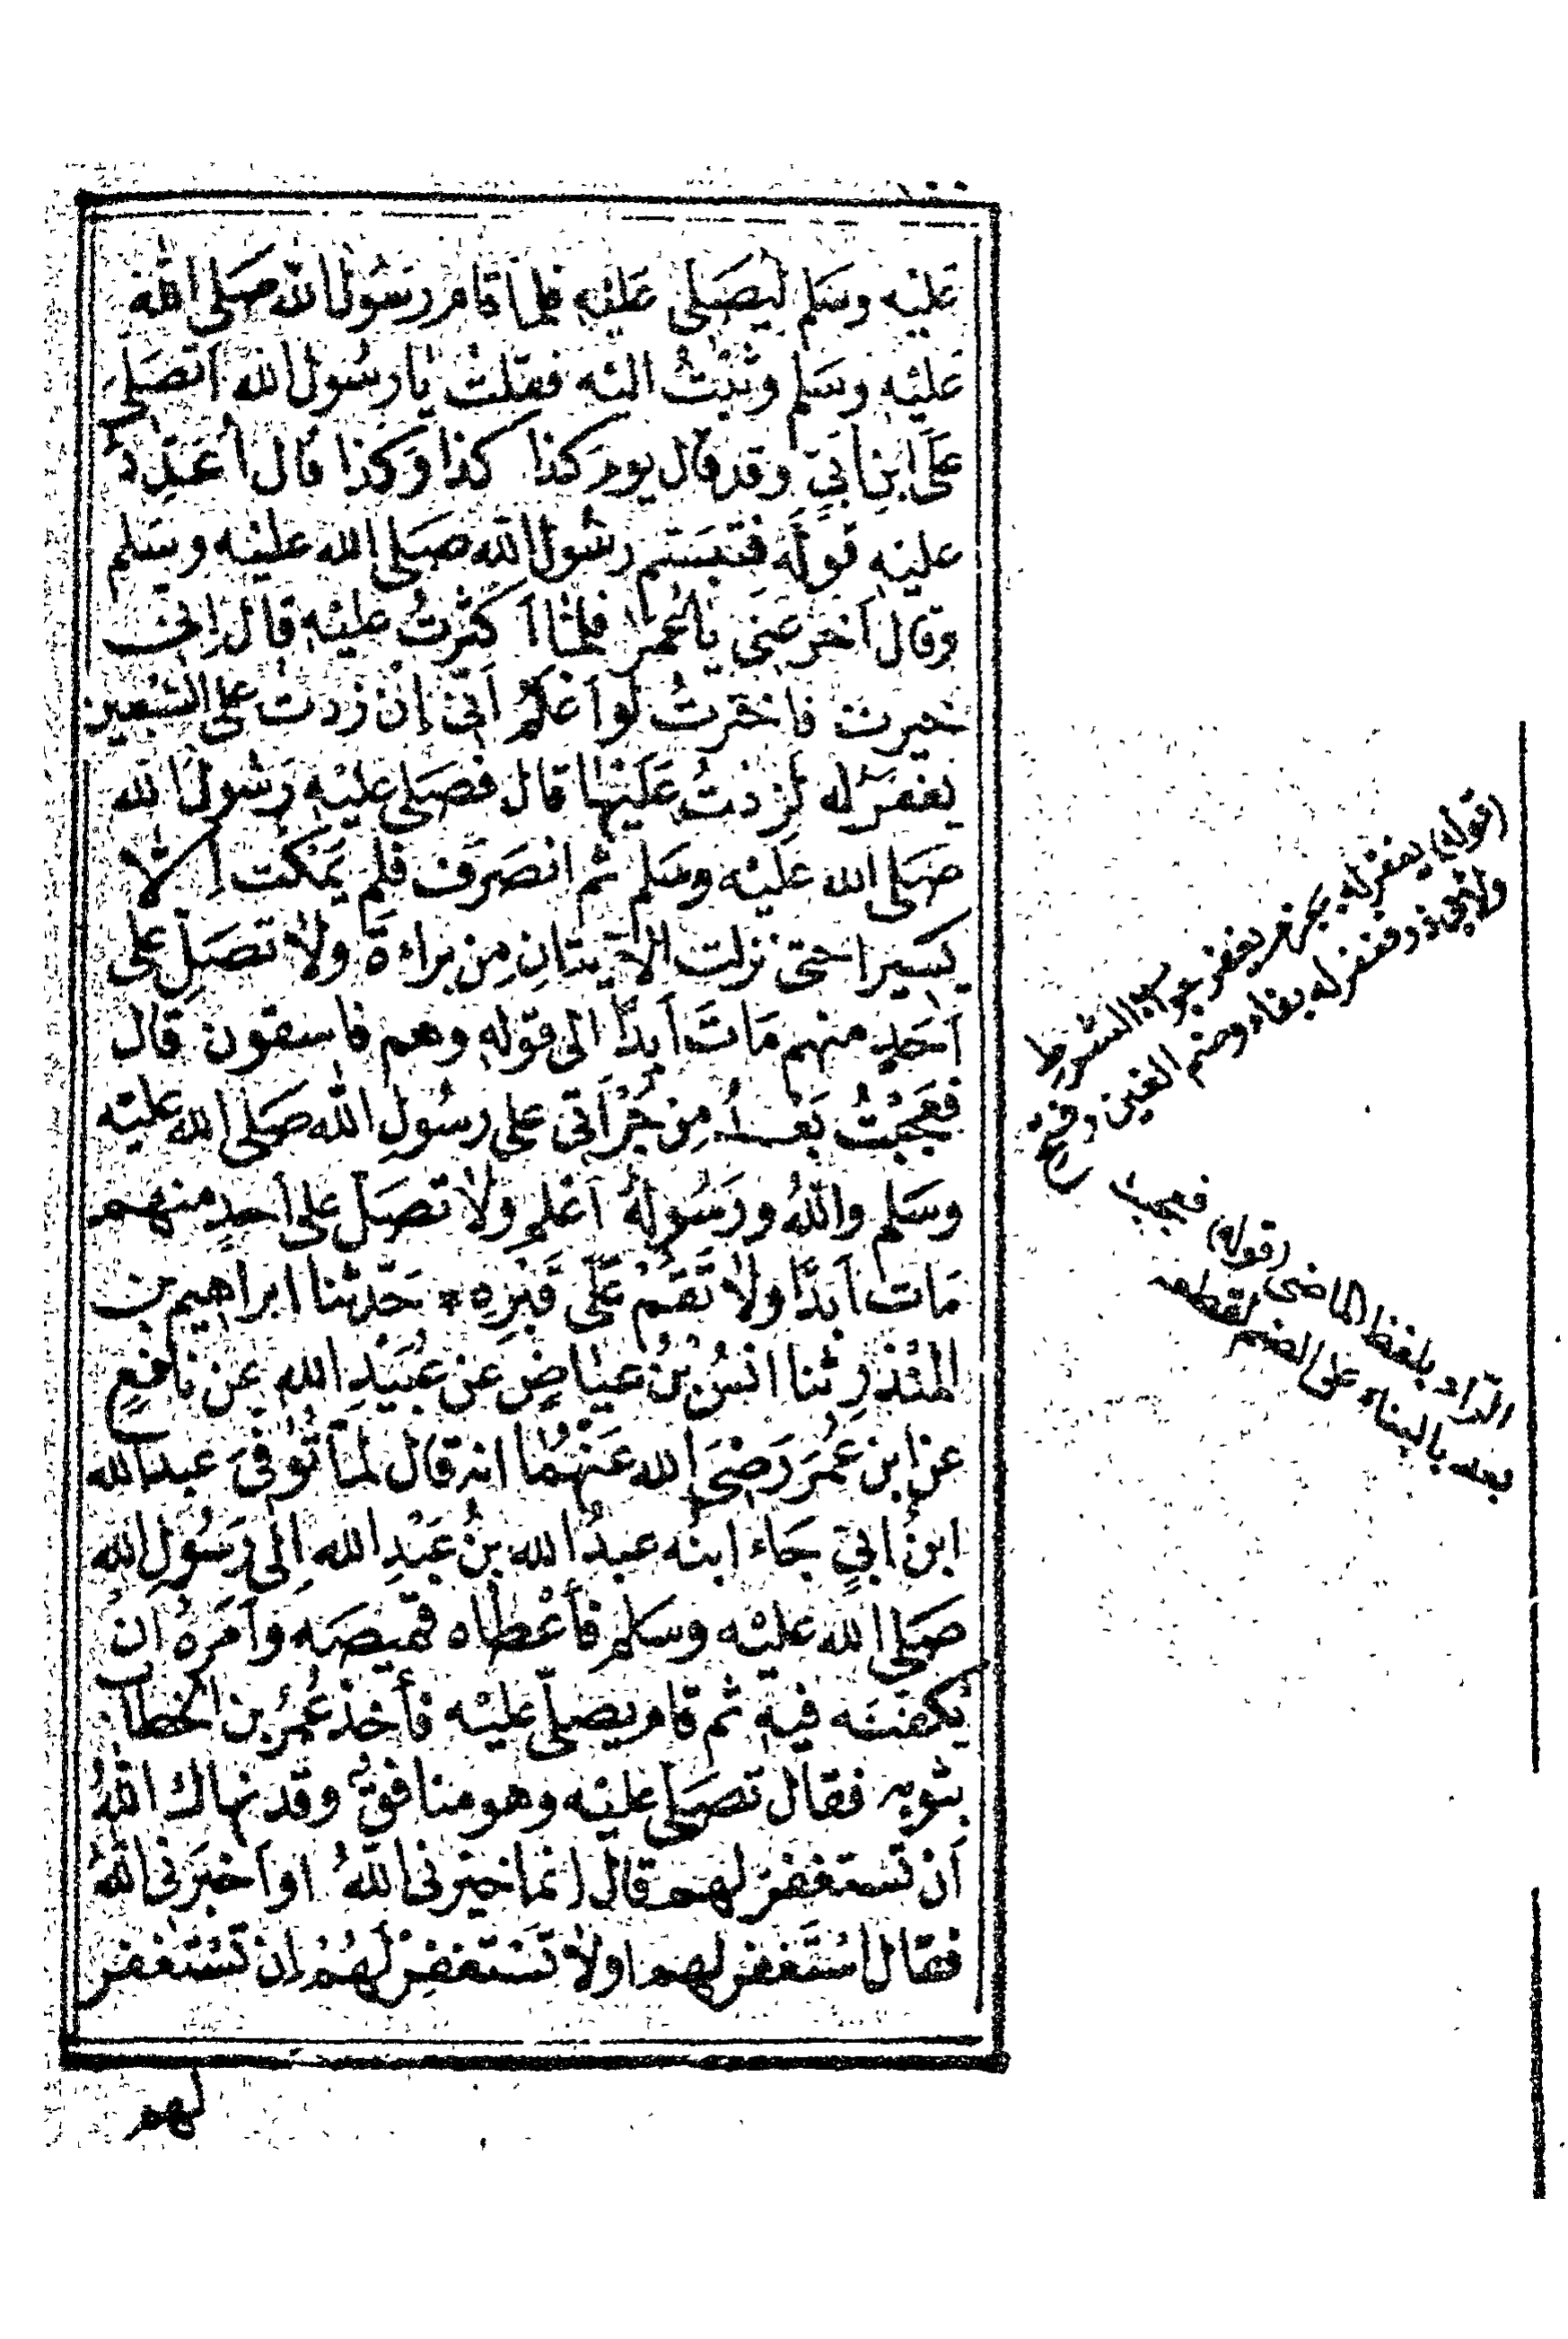 ١٠٠
عَليْه وسَلم ليُصَلى عَليْه فلما قام رسُول الله صَلى الله
عَليْه وسَلم وثبْتُ اليْه فقلتُ يا رسُول الله اتصَلى
عَلَى ابنِ أبَيٍّ وقد قال يومَ كذا كذا وَكذا قال أُعَدِّدُ
عليْه قولَهُ فتبسَّم رسُول الله صَلى الله عليْه وسَلم
وقال أَخر عَنى يا عُمر فلمَّا أَكثرتُ عليْه قال إنى
خيرتُ فاخترتُ لو أَعْلَمُ أَنّى إنْ زدت على السَّبْعين
يغفرْ له لزدْتُ عَليْها قال فصَلى عليْه رَسُول الله
صَلى الله عَليْه وسَلم ثم انصَرَف فلم يَمكُث إلا
يسيرا حتى نزلت الآيتانِ مِن براءة ولا تصَلِّ على
أَحَدٍ منهم مَاتَ أَبدًا الى قوله وهم فاسقون قال
فعَجبْتُ بَعْدُ مِن جُرْأَتى على رسُولِ الله صَلى الله عليْه
وسَلم واللهُ ورَسُولُهُ أعْلم ولا تصَلِّ على أحدٍ منهم
مَات أَبَدًا ولا تَقمْ عَلَى قَبْرِهِ * حَدّثنا ابراهيم بن
المنْذرِ ثنا انسُ بنُ عيَاضٍ عن عُبَيْدِ الله عن نافعٍ
عن ابن عُمَرَ رَضىَ الله عَنْهُما انه قال لمّا تُوُفّىَ عبد الله
ابنُ ابَيٍّ جَاء ابنُه عبدُ الله بنُ عَبْدِ الله إلى رَسُولِ الله
صَلى الله عليْه وسَلم فأعْطاه قميصَه وأَمَرهُ أن
يُكفّنَه فيه ثم قام يصَلّى عليْه فأخذ عُمرُ بن الخطاب
بثوبه فقال تصَلى عليْه وهو منافقٌ وقد نهاك اللهُ
أَن تستغفرَ لهم قال انما خيرنى اللهُ او أَخبَرنى اللهُ
فقال اسْتَغفر لهم اولا تَسْتغفِرْ لَهُمْ إن تَسْتغفر
لهم
(قوله) يغفر له بجزم يغفر جواب الشرط
ولابى ذر فغفر له بفاء وضم الغين وفتح
الراء بلفظ الماضى (قوله) فعجبت
بعد بالبناء على الضم لقطعه